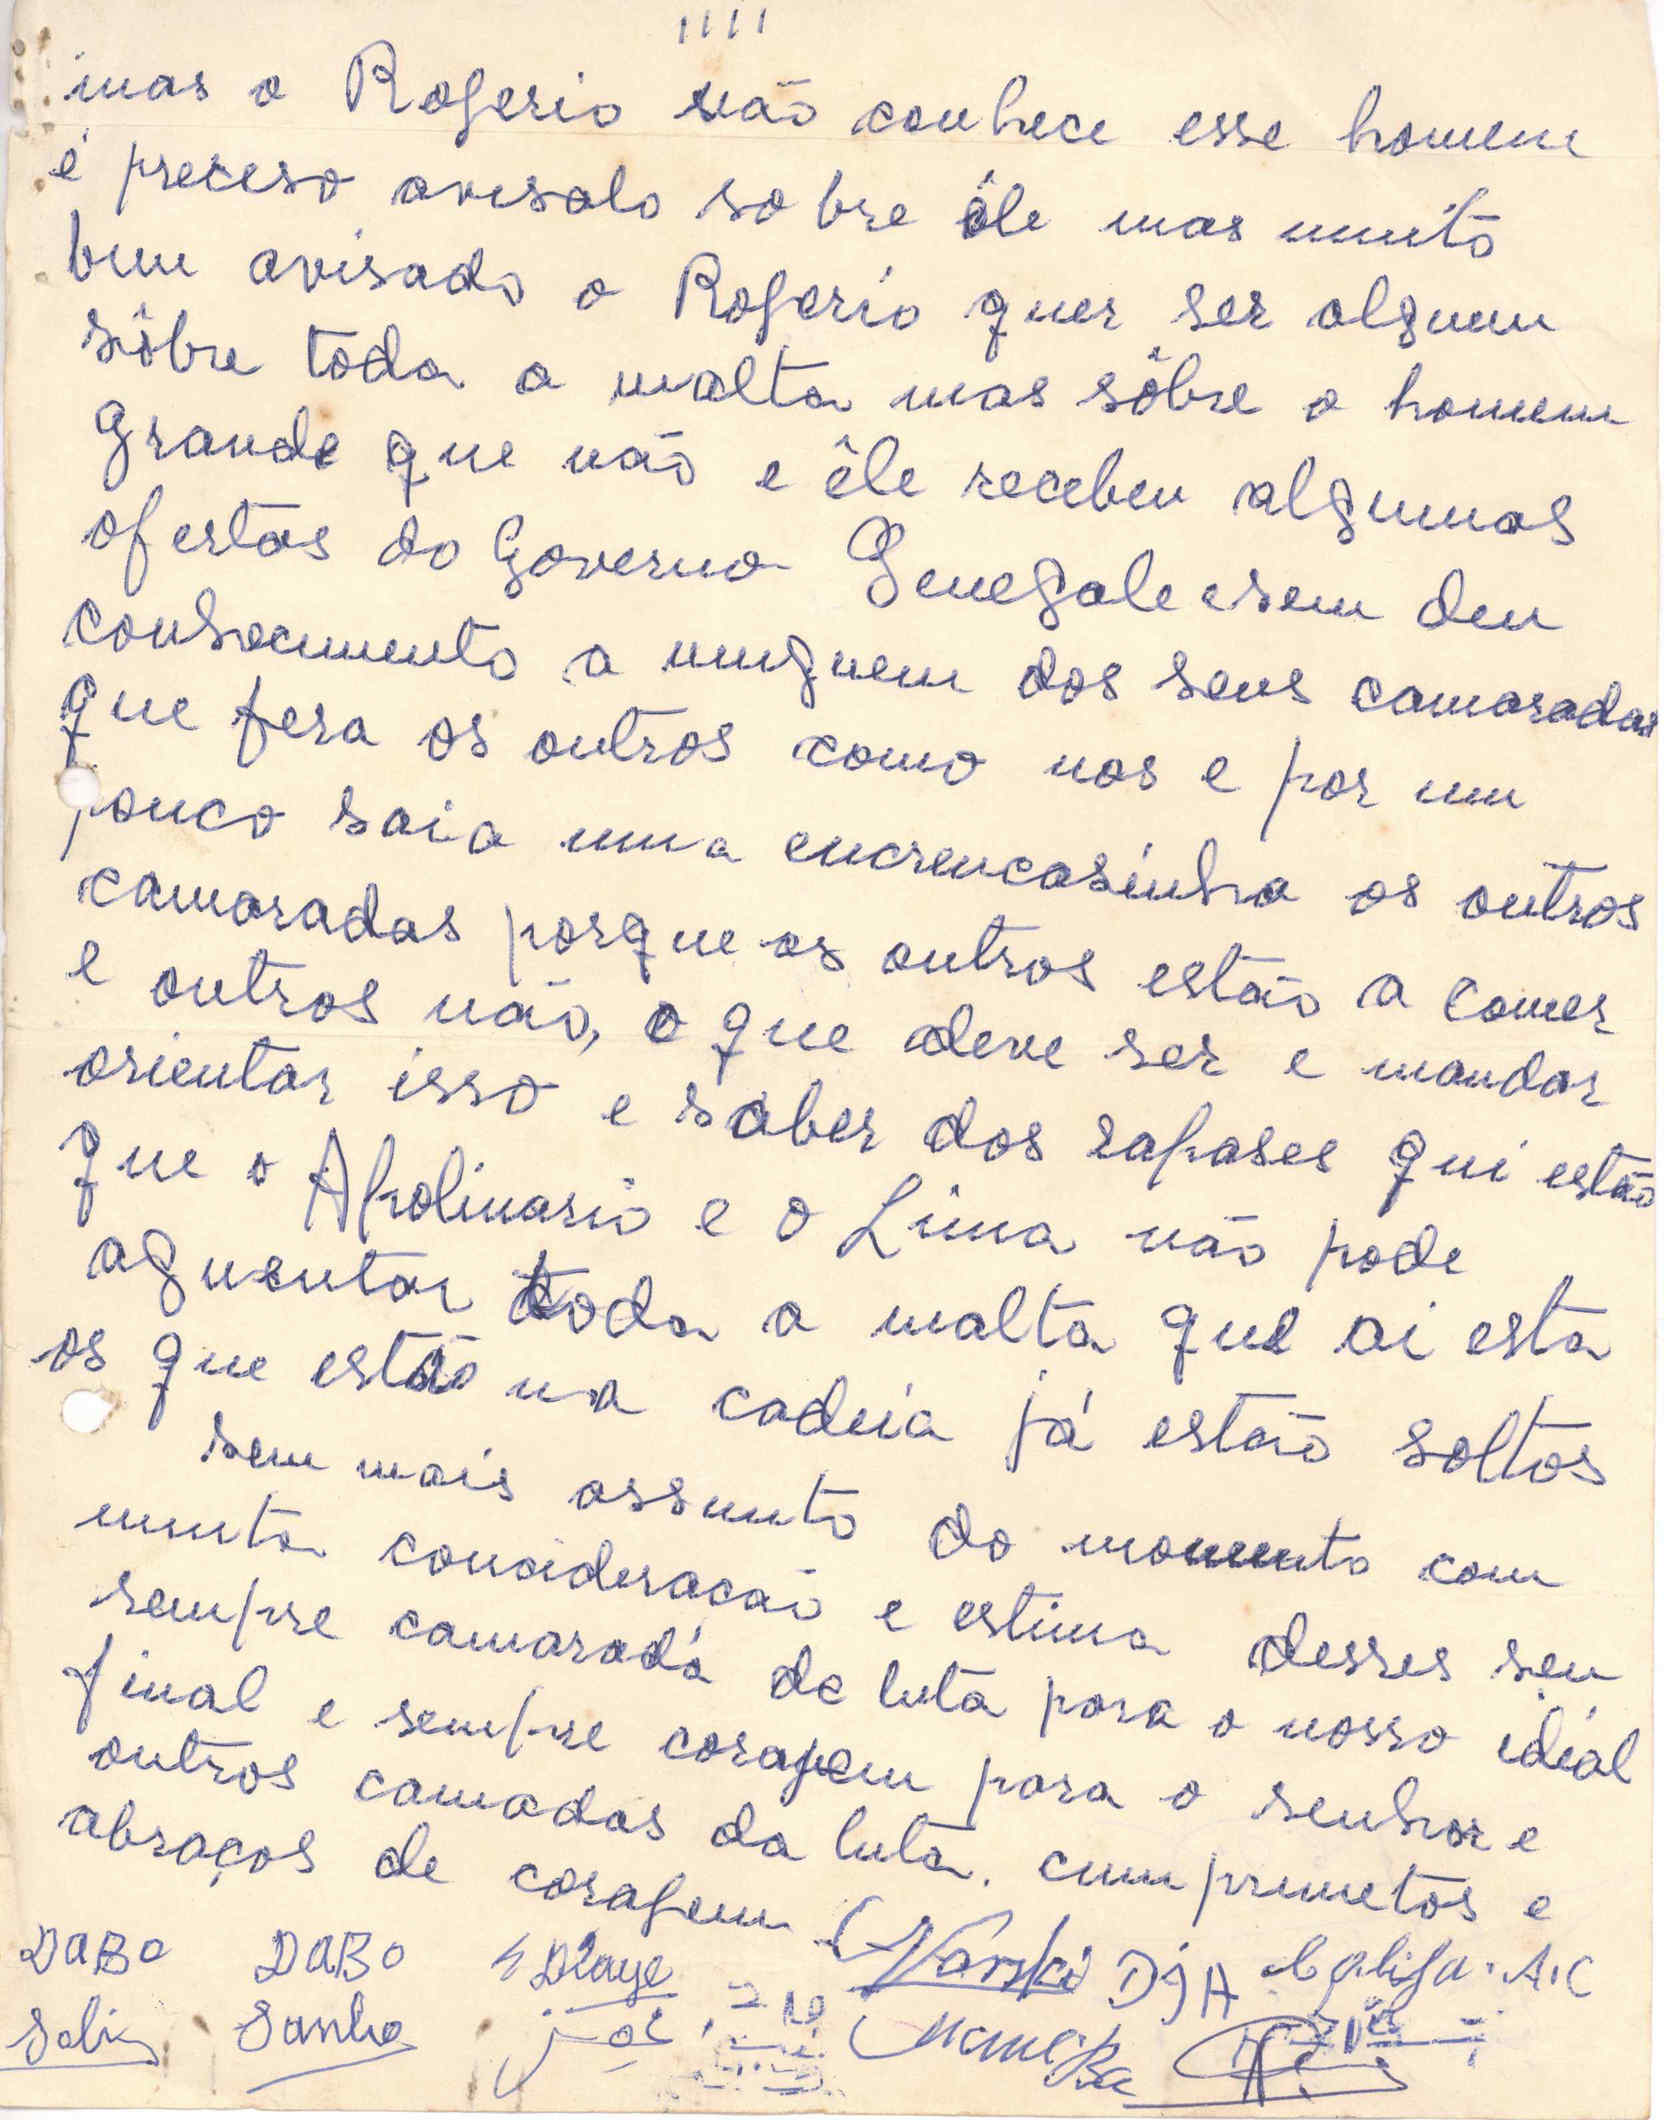 1111
mas o Rogerio não conhece esse homem
é preceso avisalo sobre êle mas muito
bem avisado o Rogerio quer ser alguem
sôbre toda a malta mas sôbre o homem
grande que não e êle recebeu algumas
ofertas do Governo Senegale esem deu
conhecimento a ninguem dos seus camaradas
que fera os outros como nos e por um
pouco saia uma encrencasinha os outros
camaradas porque os outros estão a comer
e outros não, o que deve ser e mandar
orientar isso e saber dos rapases qui estão
que o Apolinario e o Lima não pode
aguentar toda a malta que ai esta
os que estão na cadeia já estão soltos
sem mais assunto do momento com
muita consideração e estima desses seu
sempre camaradá de luta para o nosso idéal
final e sempre coragem para o senhor e
outros camadas da luta. cumprimetos e
abraços de coragem
DABO DABO Diaye DJA A.C
Sali Sanha José